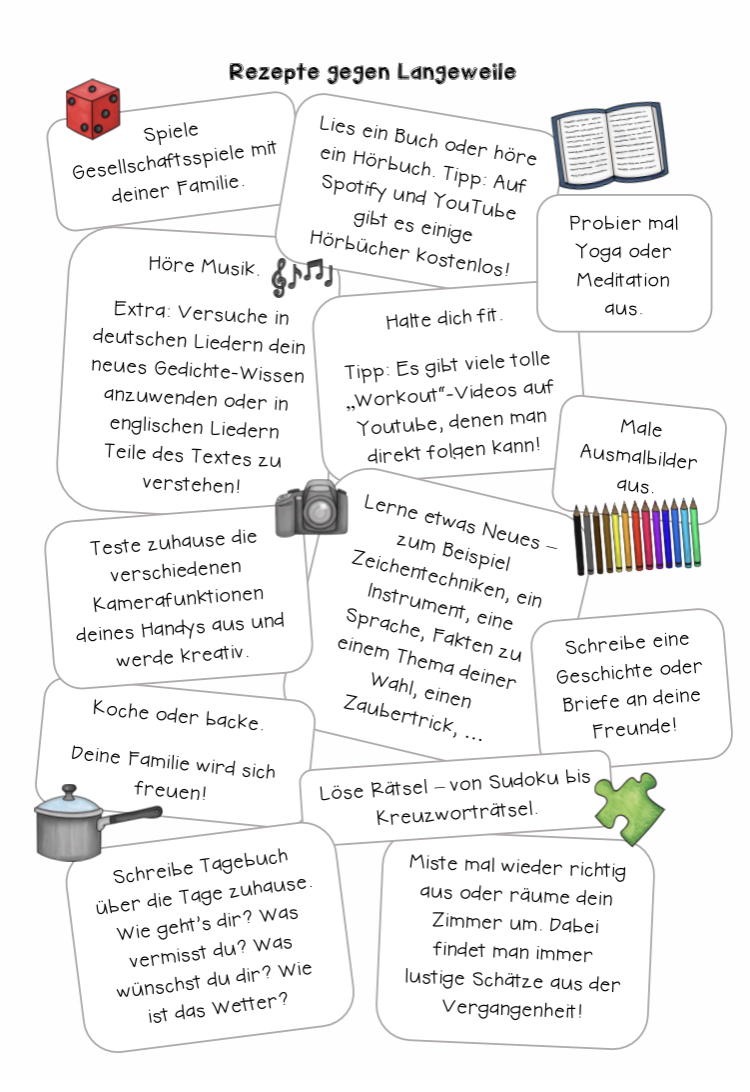 Rezepte gegen Langeweile
Spiele
Gesellschaftsspiele mit
deiner Familie.
Lies ein Buch oder höre
ein Hörbuch. Tipp: Auf
Spotify und YouTube
gibt es einige
Hörbücher kostenlos!
Probier mal
Yoga oder
Meditation
aus.
Höre Musik.
Extra: Versuche in
deutschen Liedern dein
neues Gedichte-Wissen
anzuwenden oder in
englischen Liedern
Teile des Textes zu
verstehen!
Halte dich fit.
Tipp: Es gibt viele tolle
„Workout“-Videos auf
Youtube, denen man
direkt folgen kann!
Male
Ausmalbilder
aus.
Teste zuhause die
verschiedenen
Kamerafunktionen
deines Handys aus und
werde kreativ.
Lerne etwas Neues –
zum Beispiel
Zeichentechniken, ein
Instrument, eine
Sprache, Fakten zu
einem Thema deiner
Wahl, einen
Zaubertrick, ...
Schreibe eine
Geschichte oder
Briefe an deine
Freunde!
Koche oder backe.
Deine Familie wird sich
freuen!
Löse Rätsel – von Sudoku bis
Kreuzworträtsel.
Schreibe Tagebuch
über die Tage zuhause.
Wie geht's dir? Was
vermisst du? Was
wünschst du dir? Wie
ist das Wetter?
Miste mal wieder richtig
aus oder räume dein
Zimmer um. Dabei
findet man immer
lustige Schätze aus der
Vergangenheit!